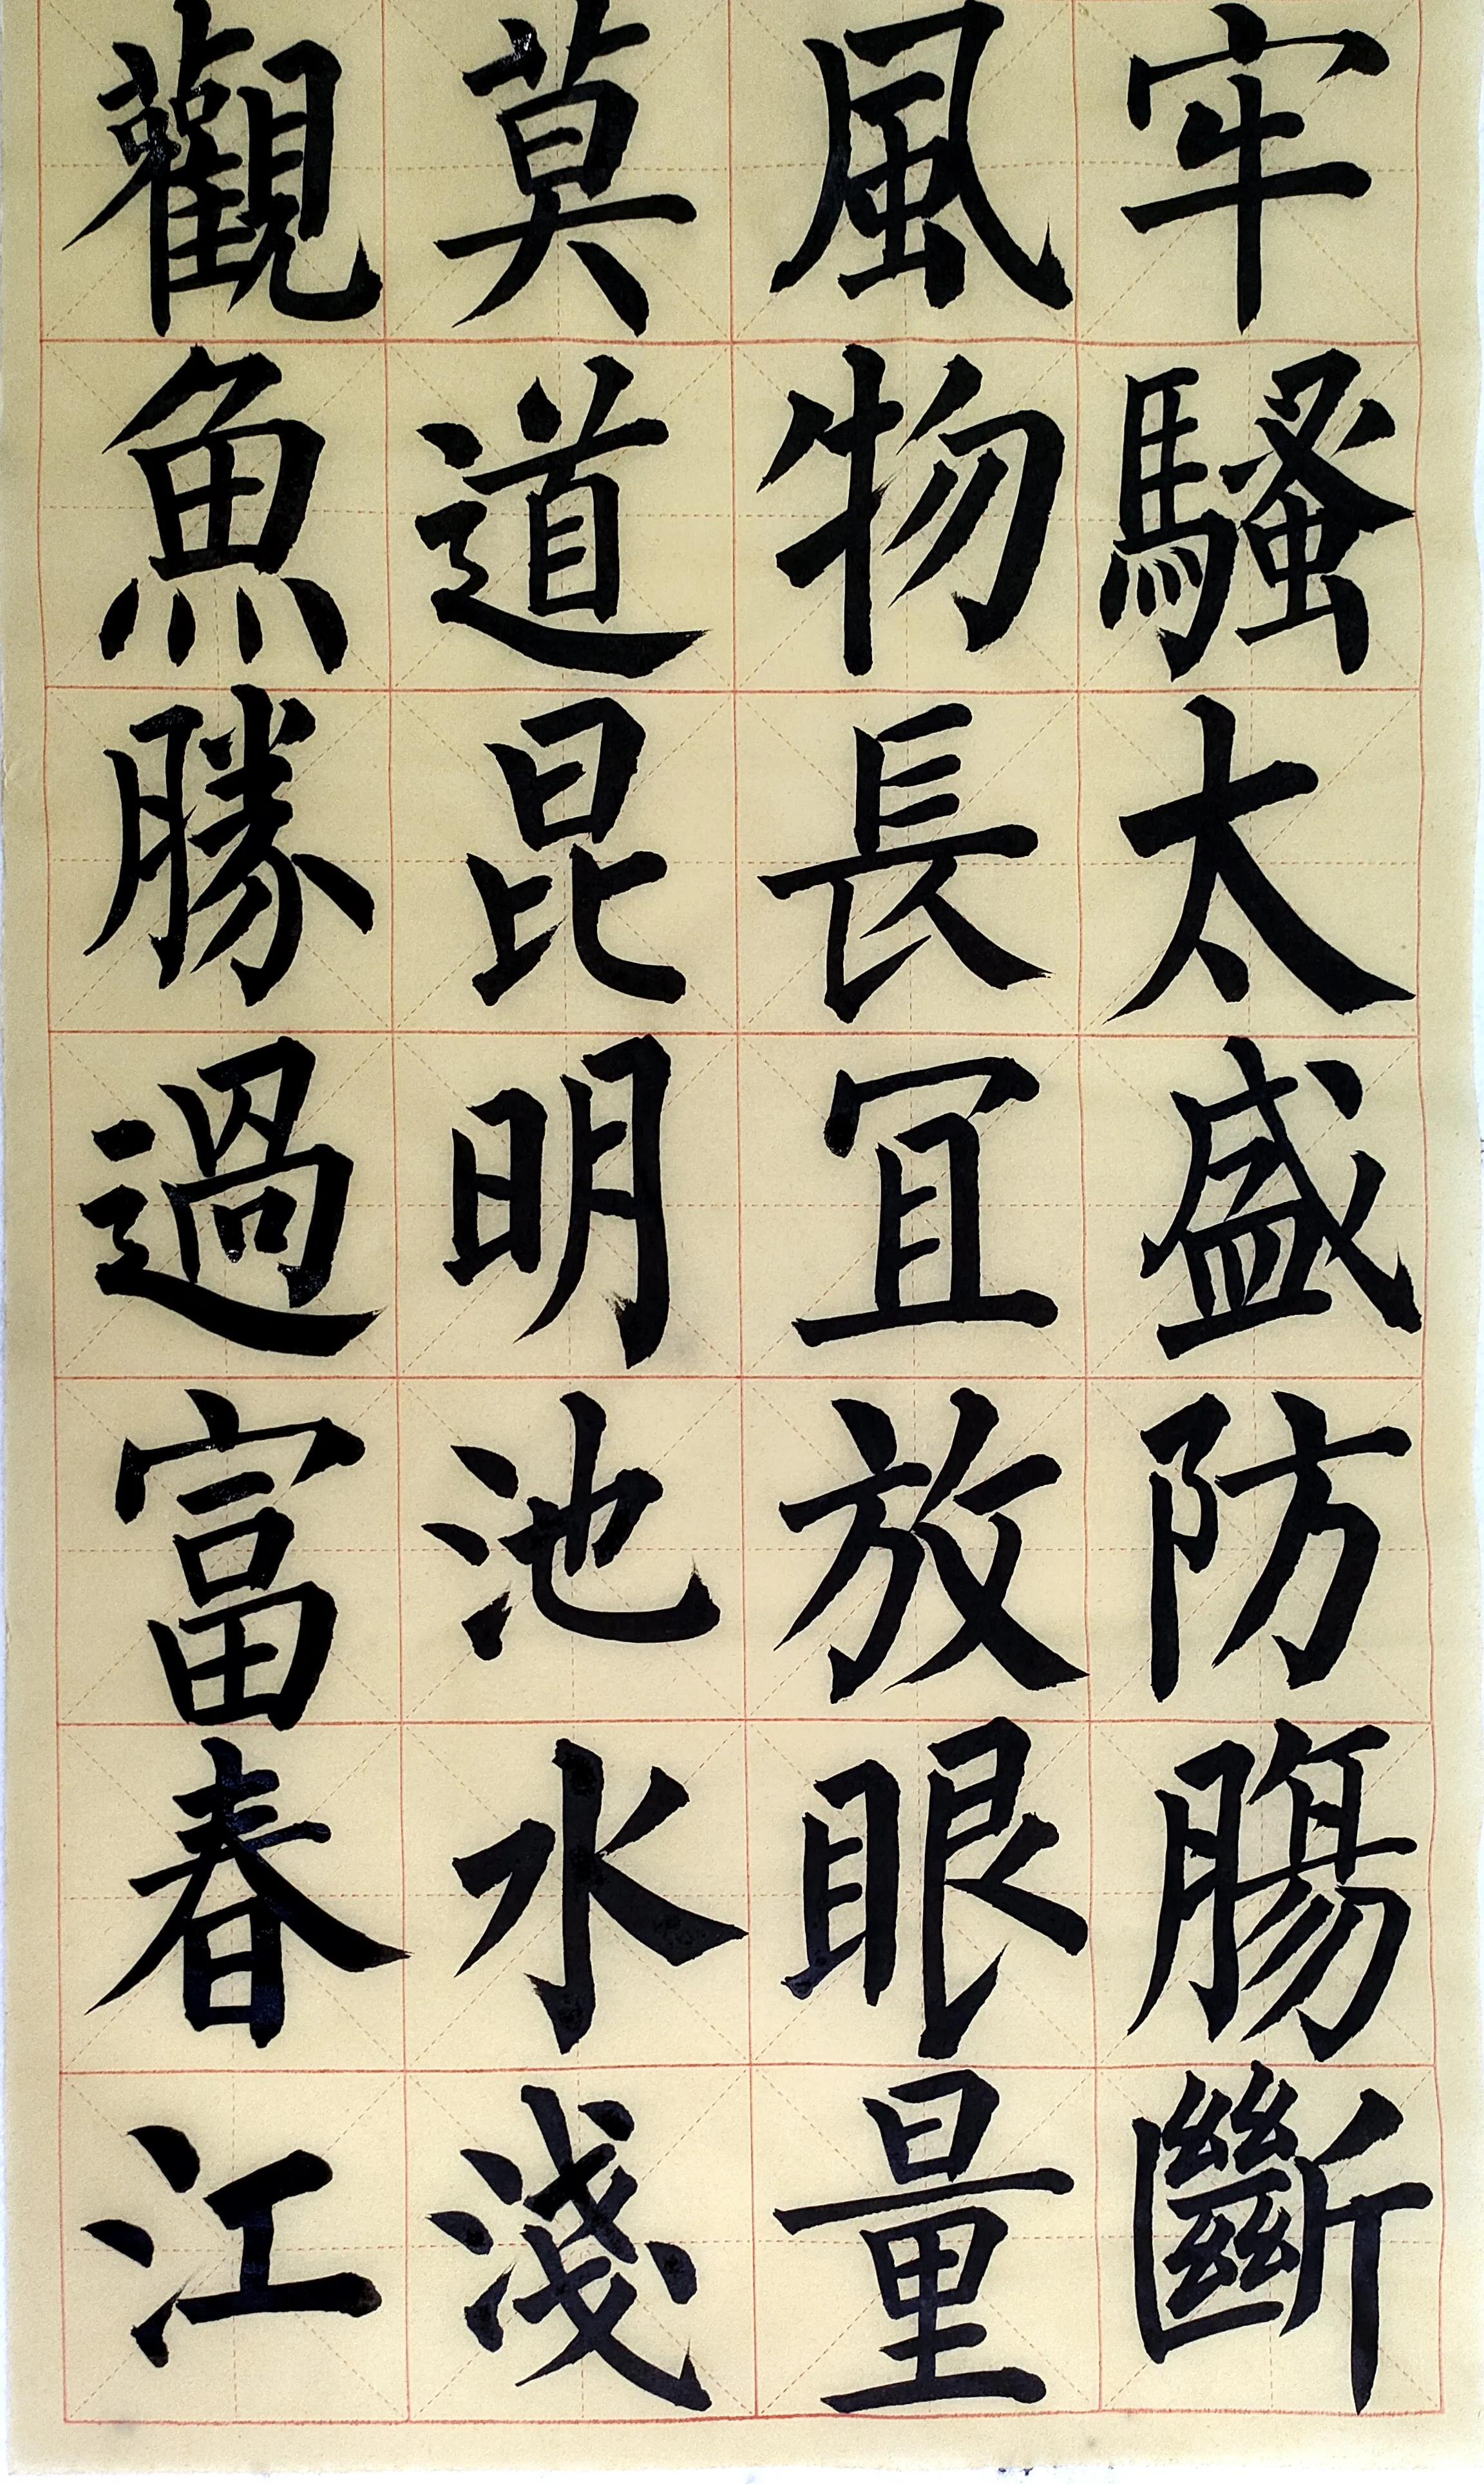 牢騷太盛防腸斷
風物長宜放眼量
莫道昆明池水淺
觀魚勝過富春江